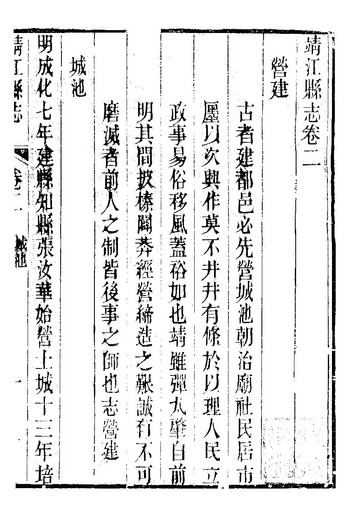 靖江縣志卷二
營建
古者建都邑必先營城池朝治廟社民居市
廛以次興作莫不井井有條於以理人民立
政事易俗移風蓋裕如也靖雖彈丸肇自前
明其間披榛闢莽經營締造之艱誠有不可
磨滅者前人之制皆後事之師也志營建
城池
明成化七年建縣知縣張汝華始營土城十三年培
靖江縣志
卷二 城池 一